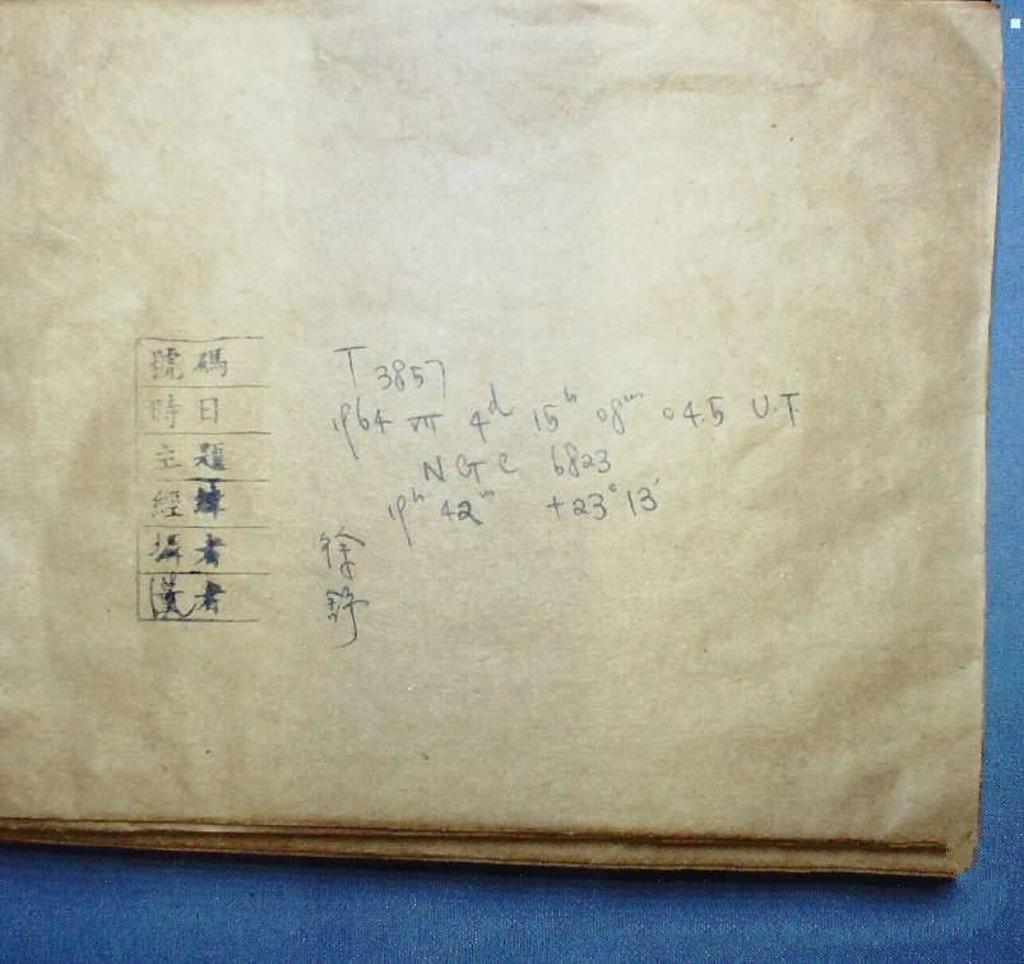 號碼 T 3857
時日 1964 VII 4d 15h 08m 04.5 U.T.
主題 NGC 6823
經緯 19h 42m +23°13'
攝者 徐
者